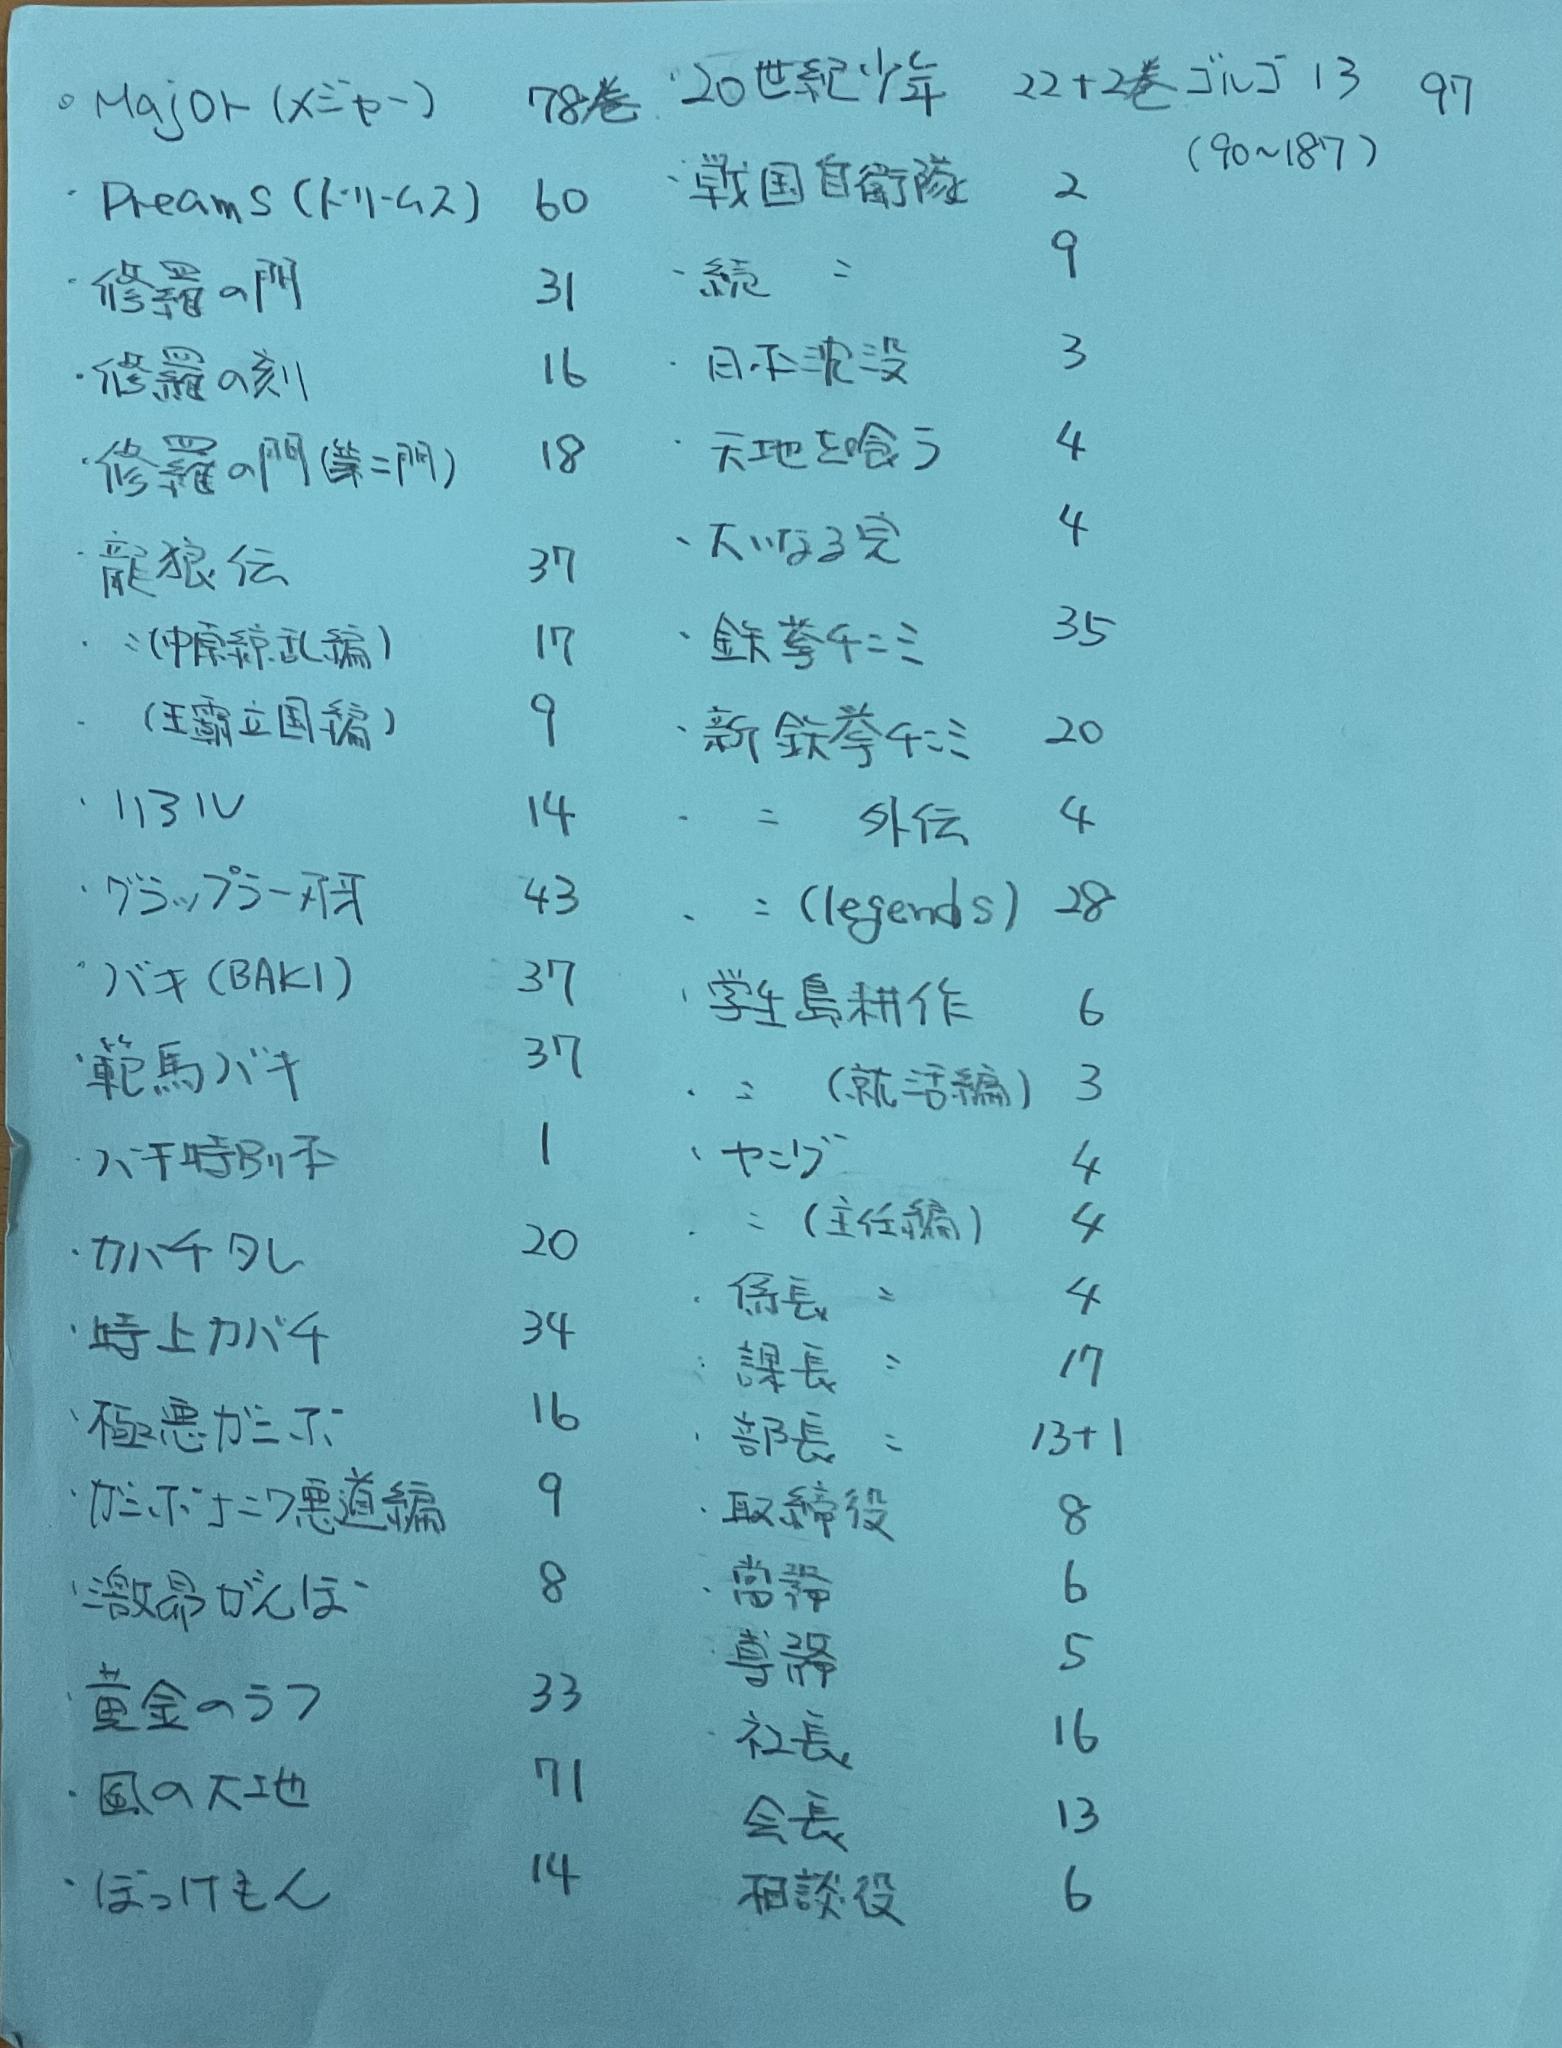 。Major(メジャー) 78巻
・Dreams(ドリームス) 60
・修羅の門 31
・修羅の刻 16
・修羅の門(第二門) 18
・龍狼伝 37
・〃(中原繚乱編) 17
・(王霸立国編) 9
・リアル 14
・グラップラー刃牙 43
・バキ(BAKI) 37
・範馬バキ 37
・バキ特別本 1
・カバチタレ 20
・特上カバチ 34
・極悪ガンボ 16
・ガンボナニワ悪道編 9
・激昂がんぼ 8
・黄金のラフ 33
・風の大地 71
・ぼっけもん 14
・20世紀少年 22+2巻
・戦国自衛隊 2
・続 〃 9
・日本沈没 3
・天地を喰う 4
・大いなる完 4
・鉄拳チンミ 35
・新鉄拳チンミ 20
・〃 外伝 4
・〃(legends) 28
・学生島耕作 6
・〃 (就活編) 3
・ヤング 4
・〃 (主任編) 4
・係長 〃 4
・課長 〃 17
・部長 〃 13+1
・取締役 8
・常務 6
・専務 5
・社長 16
会長 13
相談役 6
ゴルゴ13 97
(90~187)